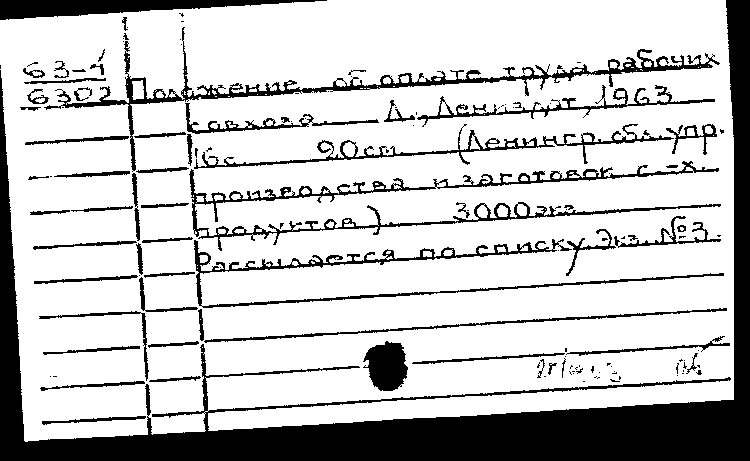 63-4
6302 Положение об оплате труда рабочих
совхоза. Л., Лениздат, 1963
16с. 20см (Ленингр. обл. упр.
производства и заготовок с.-х.
продуктов). 3000экз.
Рассылается по списку. Экз. №3.